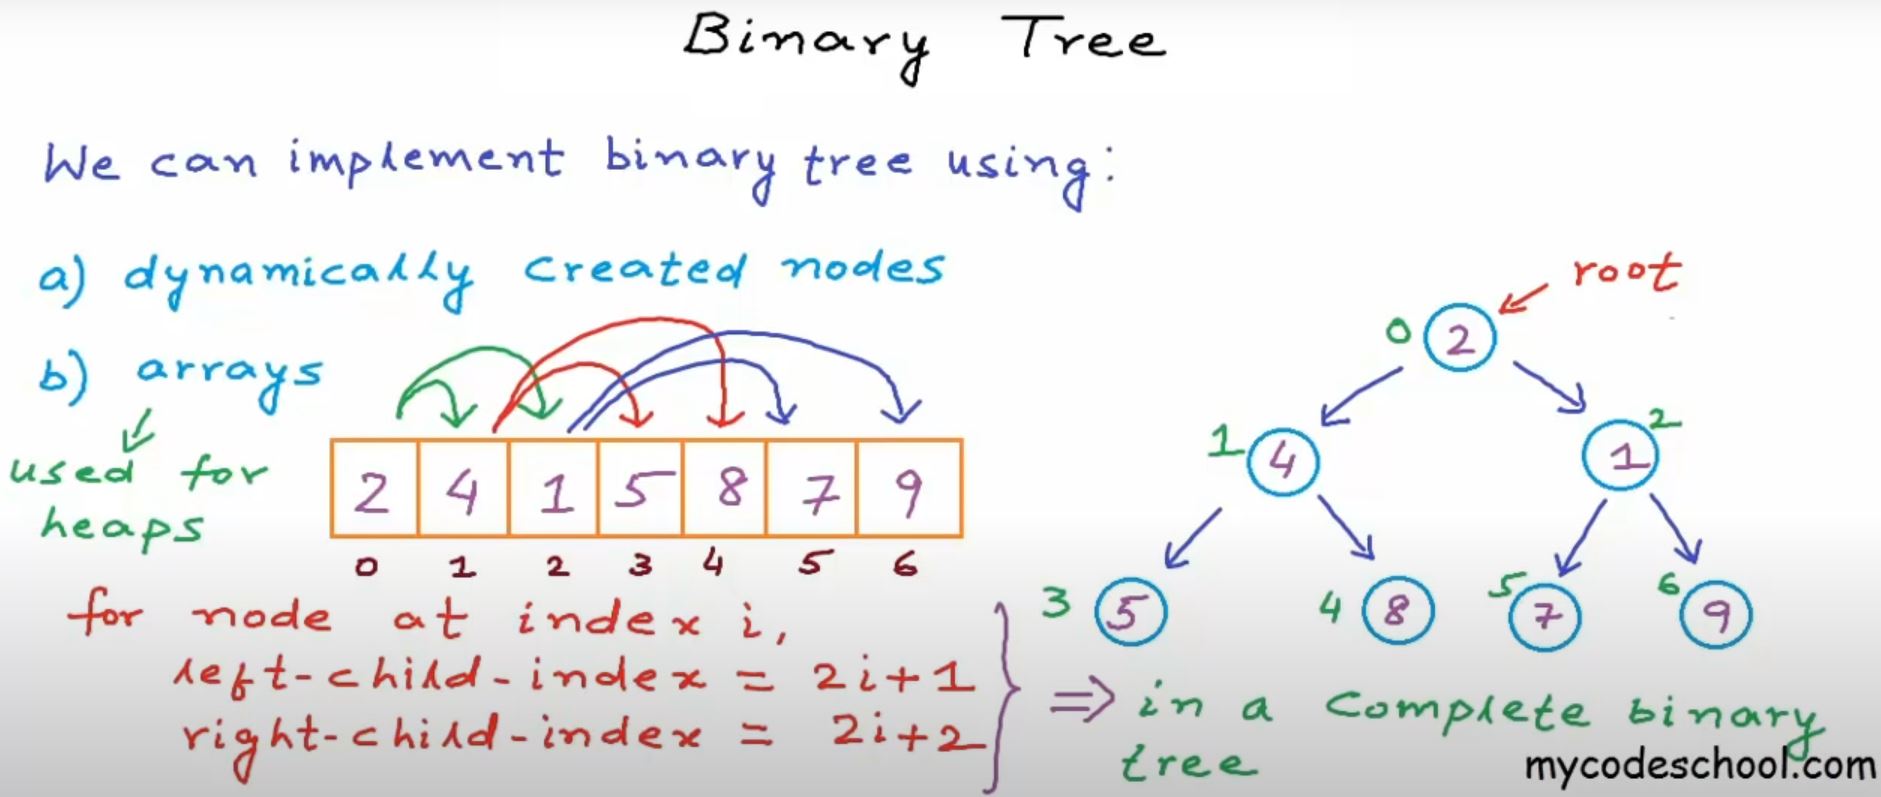 Binary Tree
We can implement binary tree using:
a) dynamically created nodes
b) arrays
used for
heaps
2 4 1 5 8 7 9
0 1 2 3 4 5 6
for node at index i,
left-child-index = 2i+1
right-child-index = 2i+2
root
0 2
1 4
1 2
3 5
4 8
5 7
6 9
⇒ in a complete binary
tree
mycodeschool.com